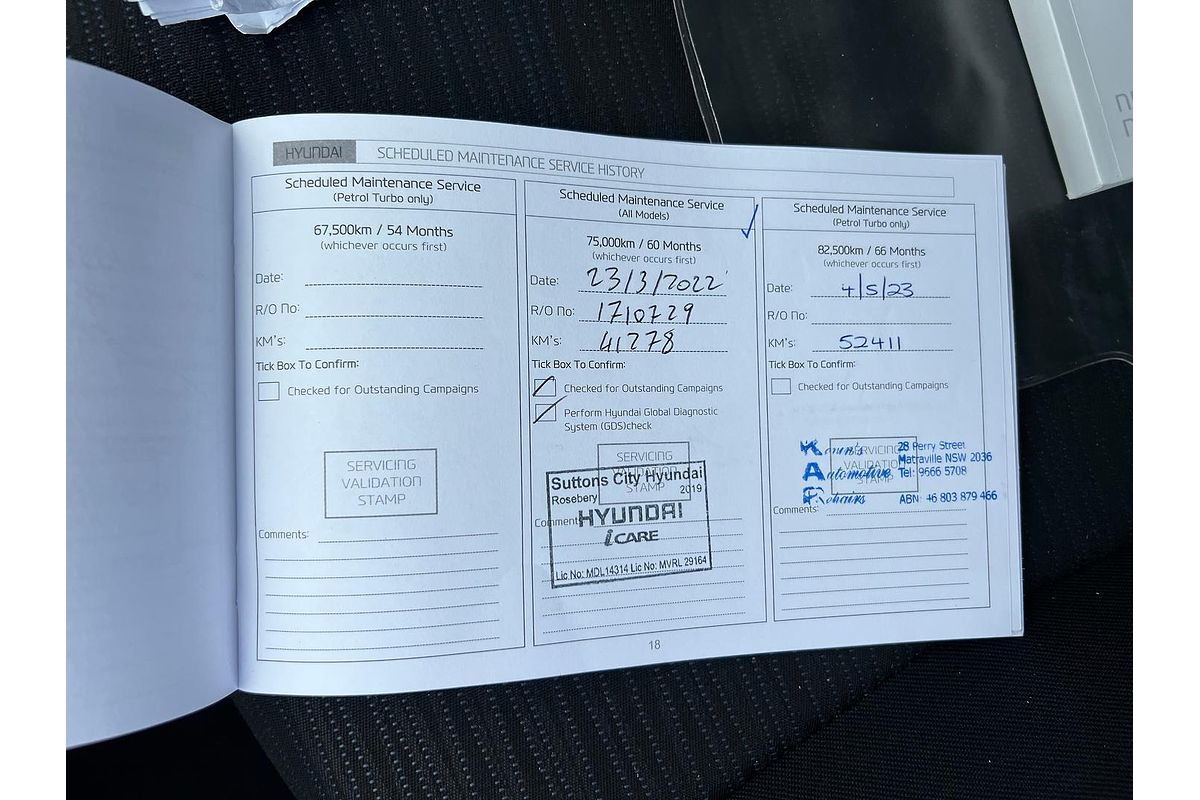 HYUNDAI SCHEDULED MAINTENANCE SERVICE HISTORY
Scheduled Maintenance Service
(Petrol Turbo only)
67,500km / 54 Months
(whichever occurs first)
Date:
R/O No:
KM's:
Tick Box To Confirm:
Checked for Outstanding Campaigns
SERVICING
VALIDATION
STAMP
Comments:
Scheduled Maintenance Service
(All Models)
75,000km / 60 Months
(whichever occurs first)
Date: 23/3/2022
R/O No: 1710729
KM's: 41278
Tick Box To Confirm:
Checked for Outstanding Campaigns
Perform Hyundai Global Diagnostic
System (GDS)check
SERVICING
VALIDATION
STAMP
Suttons City Hyundai
Rosebery 2019
HYUNDAI
iCARE
Lic No: MDL14314 Lic No: MVRL 29164
Comments:
Scheduled Maintenance Service
(Petrol Turbo only)
82,500km / 66 Months
(whichever occurs first)
Date: 4/5/23
R/O No:
KM's: 52411
Tick Box To Confirm:
Checked for Outstanding Campaigns
SERVICING
VALIDATION
STAMP
Automotive
28 Perry Street
Matraville NSW 2036
Tel: 9666 5708
ABN: 46 803 879 466
Comments:
18